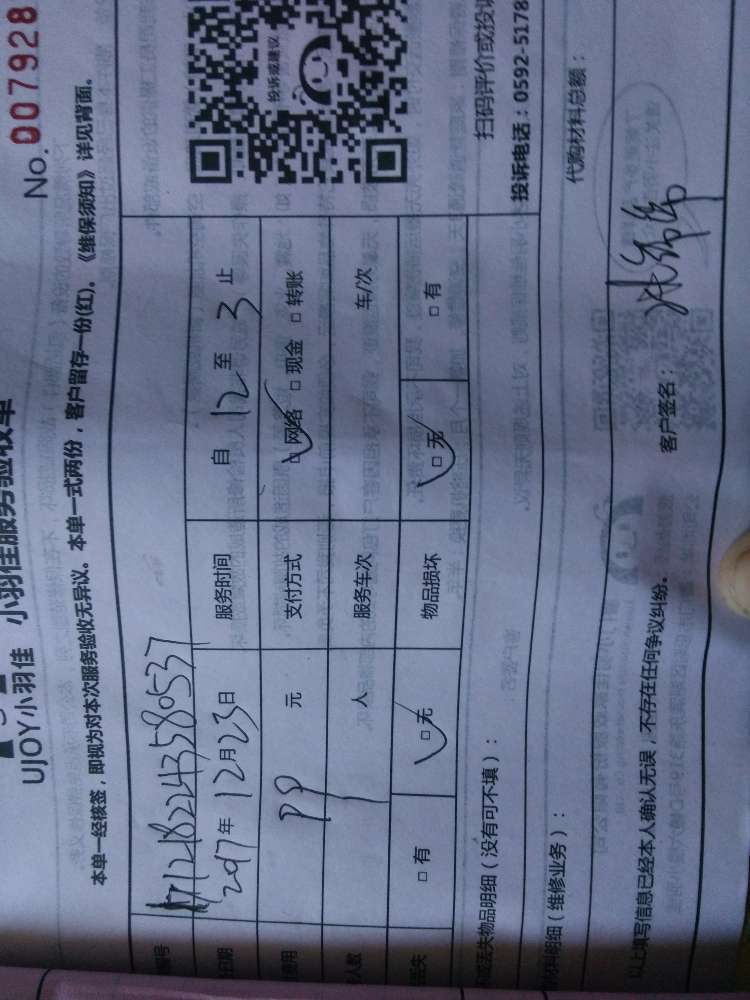 No. 007928
UJOY小羽佳 小羽佳服务验收单
本单一经核签，即视为对本次服务验收无异议。本单一式两份，客户留存一份(红)。《维保须知》详见背面。
编号 1712182243580537
日期 2017年12月23日 服务时间 自12至3止
费用 99元 支付方式 □网络 □现金 □转账
人数 1人 服务车次 车/次
丢失 □有 □无 物品损坏 □无 □有
投诉或建议
扫码评价或投诉
投诉电话：0592-5178
坏或丢失物品明细（没有可不填）：
材料明细（维修业务）： 代购材料总额：
以上填写信息已经本人确认无误，不存在任何争议纠纷。 客户签名：